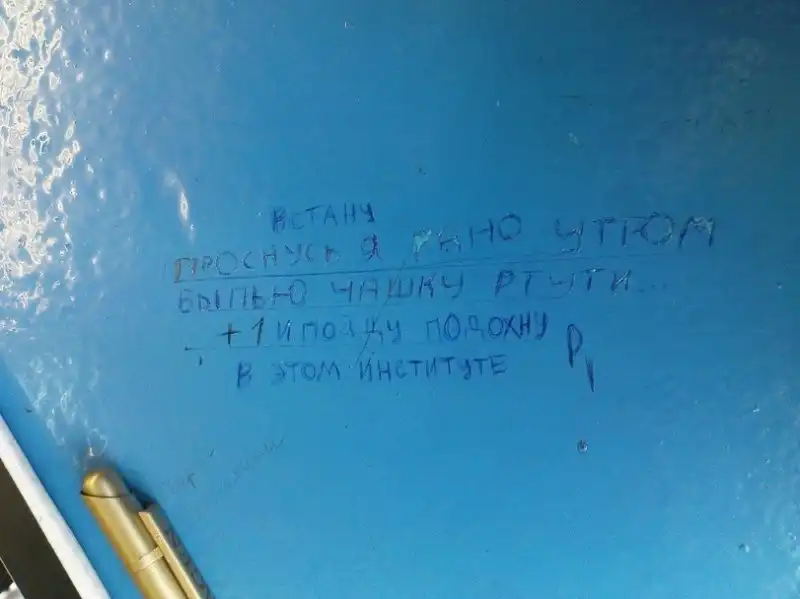 ВСТАНУ
ПРОСНУСЬ Я РАНО УТРОМ
ВЫПЬЮ ЧАШКУ РТУТИ...
+1 И ПОЙДУ ПОДОХНУ
В ЭТОМ ИНСТИТУТЕ